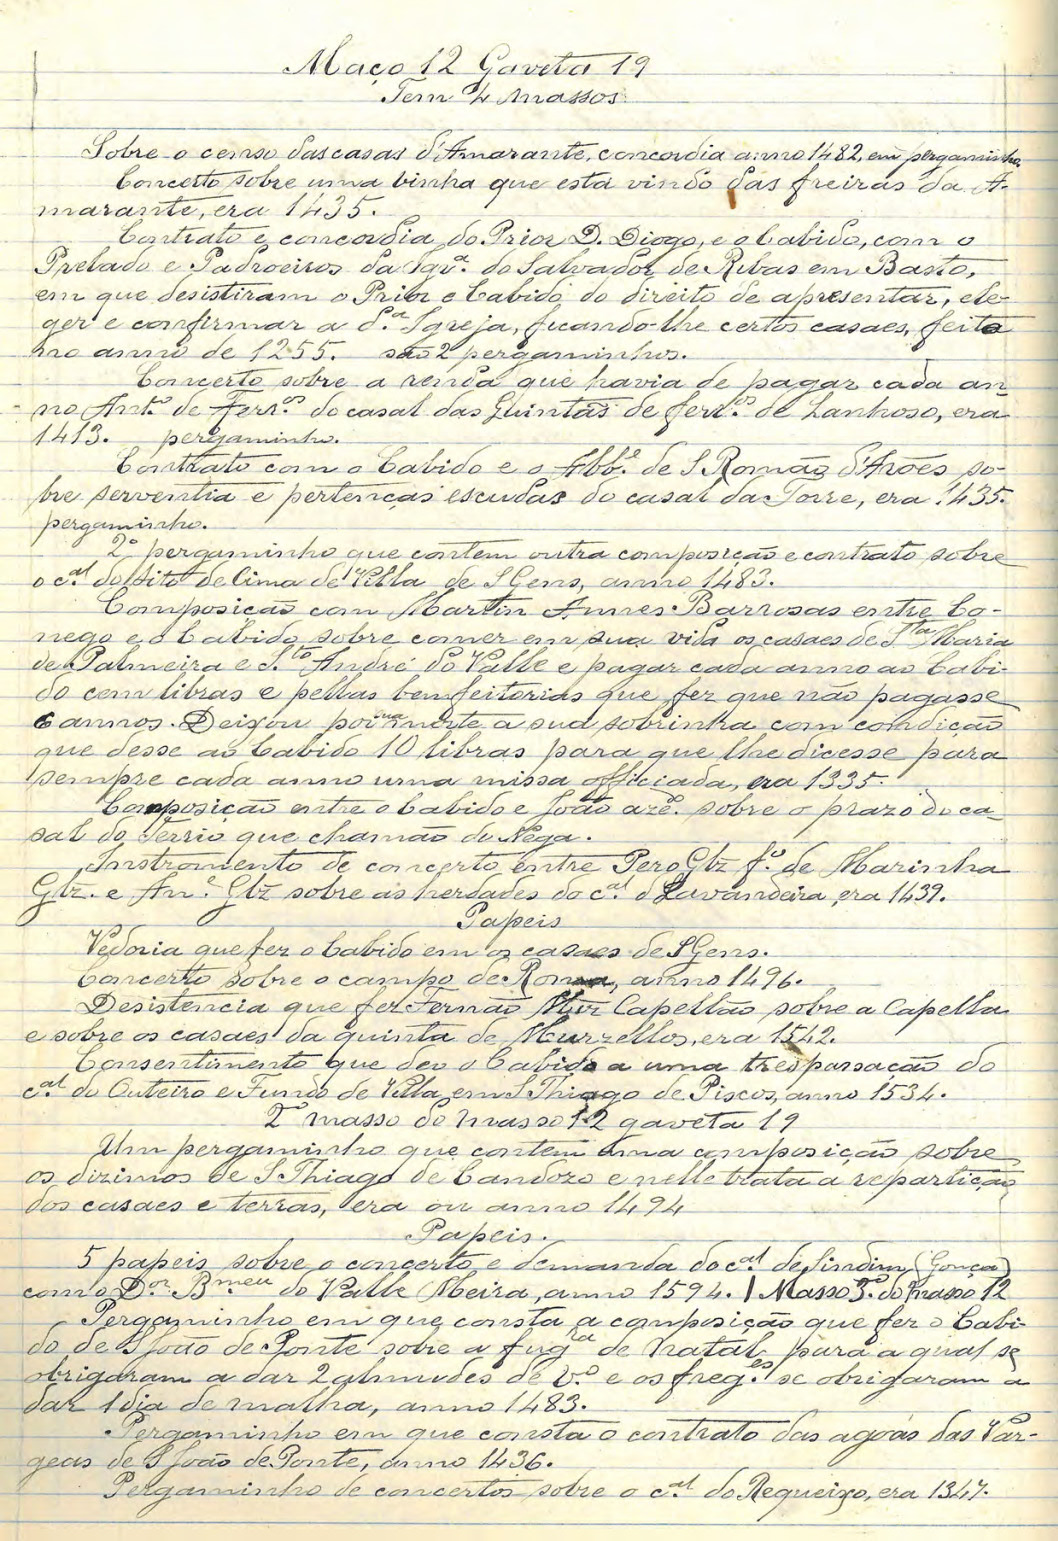 Maço 12 Gaveta 19
Tem 4 massos.
Sobre o censo das casas d'Amarante, concordia anno 1482, em pergaminho.
Concerto sobre uma vinha que está vindo das freiras da A-
marante, era 1435.
Contrato e concordia do Prior D. Diogo, e o Cabido, com o
Prelado e Padroeiros da Igr.ª do Salvador de Ribas em Basto,
em que desistiram o Prior e Cabido do direito de apresentar, ele-
ger e confirmar a d.ª Igreja, ficando-lhe certos casaes, feito
no anno de 1255. são 2 pergaminhos.
Concerto sobre a renda que havia de pagar cada an-
no Ant.º de Ferr.os do casal das Quintãs de ferr.os de Lanhoso, era
1413. pergaminho.
Contrato com o Cabido e o Abb.e de S Romão d'Arões so-
bre serventia e pertenças escudas do casal da Torre, era 1435.
pergaminho.
2º pergaminho que contem outra composição e contrato sobre
o c.al do sito de Cima de Villa de S Gens, anno 1483.
Composição com Martin Annes Barrosas entre Co-
nego e o Cabido sobre comer em sua vida os casaes de Sta Maria
de Palmeira e S.to André do Valle e pagar cada anno ao Cabi-
do cem libras e pellas bemfeitorias que fez que não pagasse
6 annos. Deixou por sua morte a sua sobrinha com condição
que desse ao Cabido 10 libras para que lhe dicesse para
sempre cada anno uma missa officiada, era 1335.
Composição entre o Cabido e João azº. sobre o prazo do ca-
sal do Terrio que chamão do Nega.
Instromento de concerto entre Pero Glz f.º de Marinha
Glz. e An.º Glz sobre as herdades do c.al d Lavandeira, era 1439.
Papeis
Vedoria que fez o Cabido em os casaes de S Gens.
Concerto sobre o campo de Roma, anno 1496.
Desistencia que fez Fernão Capellão sobre a Capella
e sobre os casaes da quinta de Murzellos, era 1542.
Consentimento que deu o Cabido a uma trespassação do
c.al do Outeiro e Fundo de Villa, em S Thiago de Piscos, anno 1534.
2º masso do masso 12 gaveta 19
Um pergaminho que contem uma composição sobre
os dizimos de S Thiago de Candozo e nelle trata a repartição
dos casaes e terras, era ou anno 1494
Papeis.
5 papeis sobre o concerto e demanda do c.al de Sindim (Gonça)
com o D.or B.meu do Valle Meira, anno 1594. | Masso 3º. do masso 12
Pergaminho em que consta a composição que fez o Cabi-
do de S João de Ponte sobre a fug.ra de natal, para a qual se
obrigaram a dar 2 almudes de v.º e os freg.es se obrigaram a
dar 1 dia de malha, anno 1483.
Pergaminho em que consta o contrato das agoas das Var-
geas de S João de Ponte, anno 1436.
Pergaminho de concertos sobre o c.al do Requeixo, era 1347.